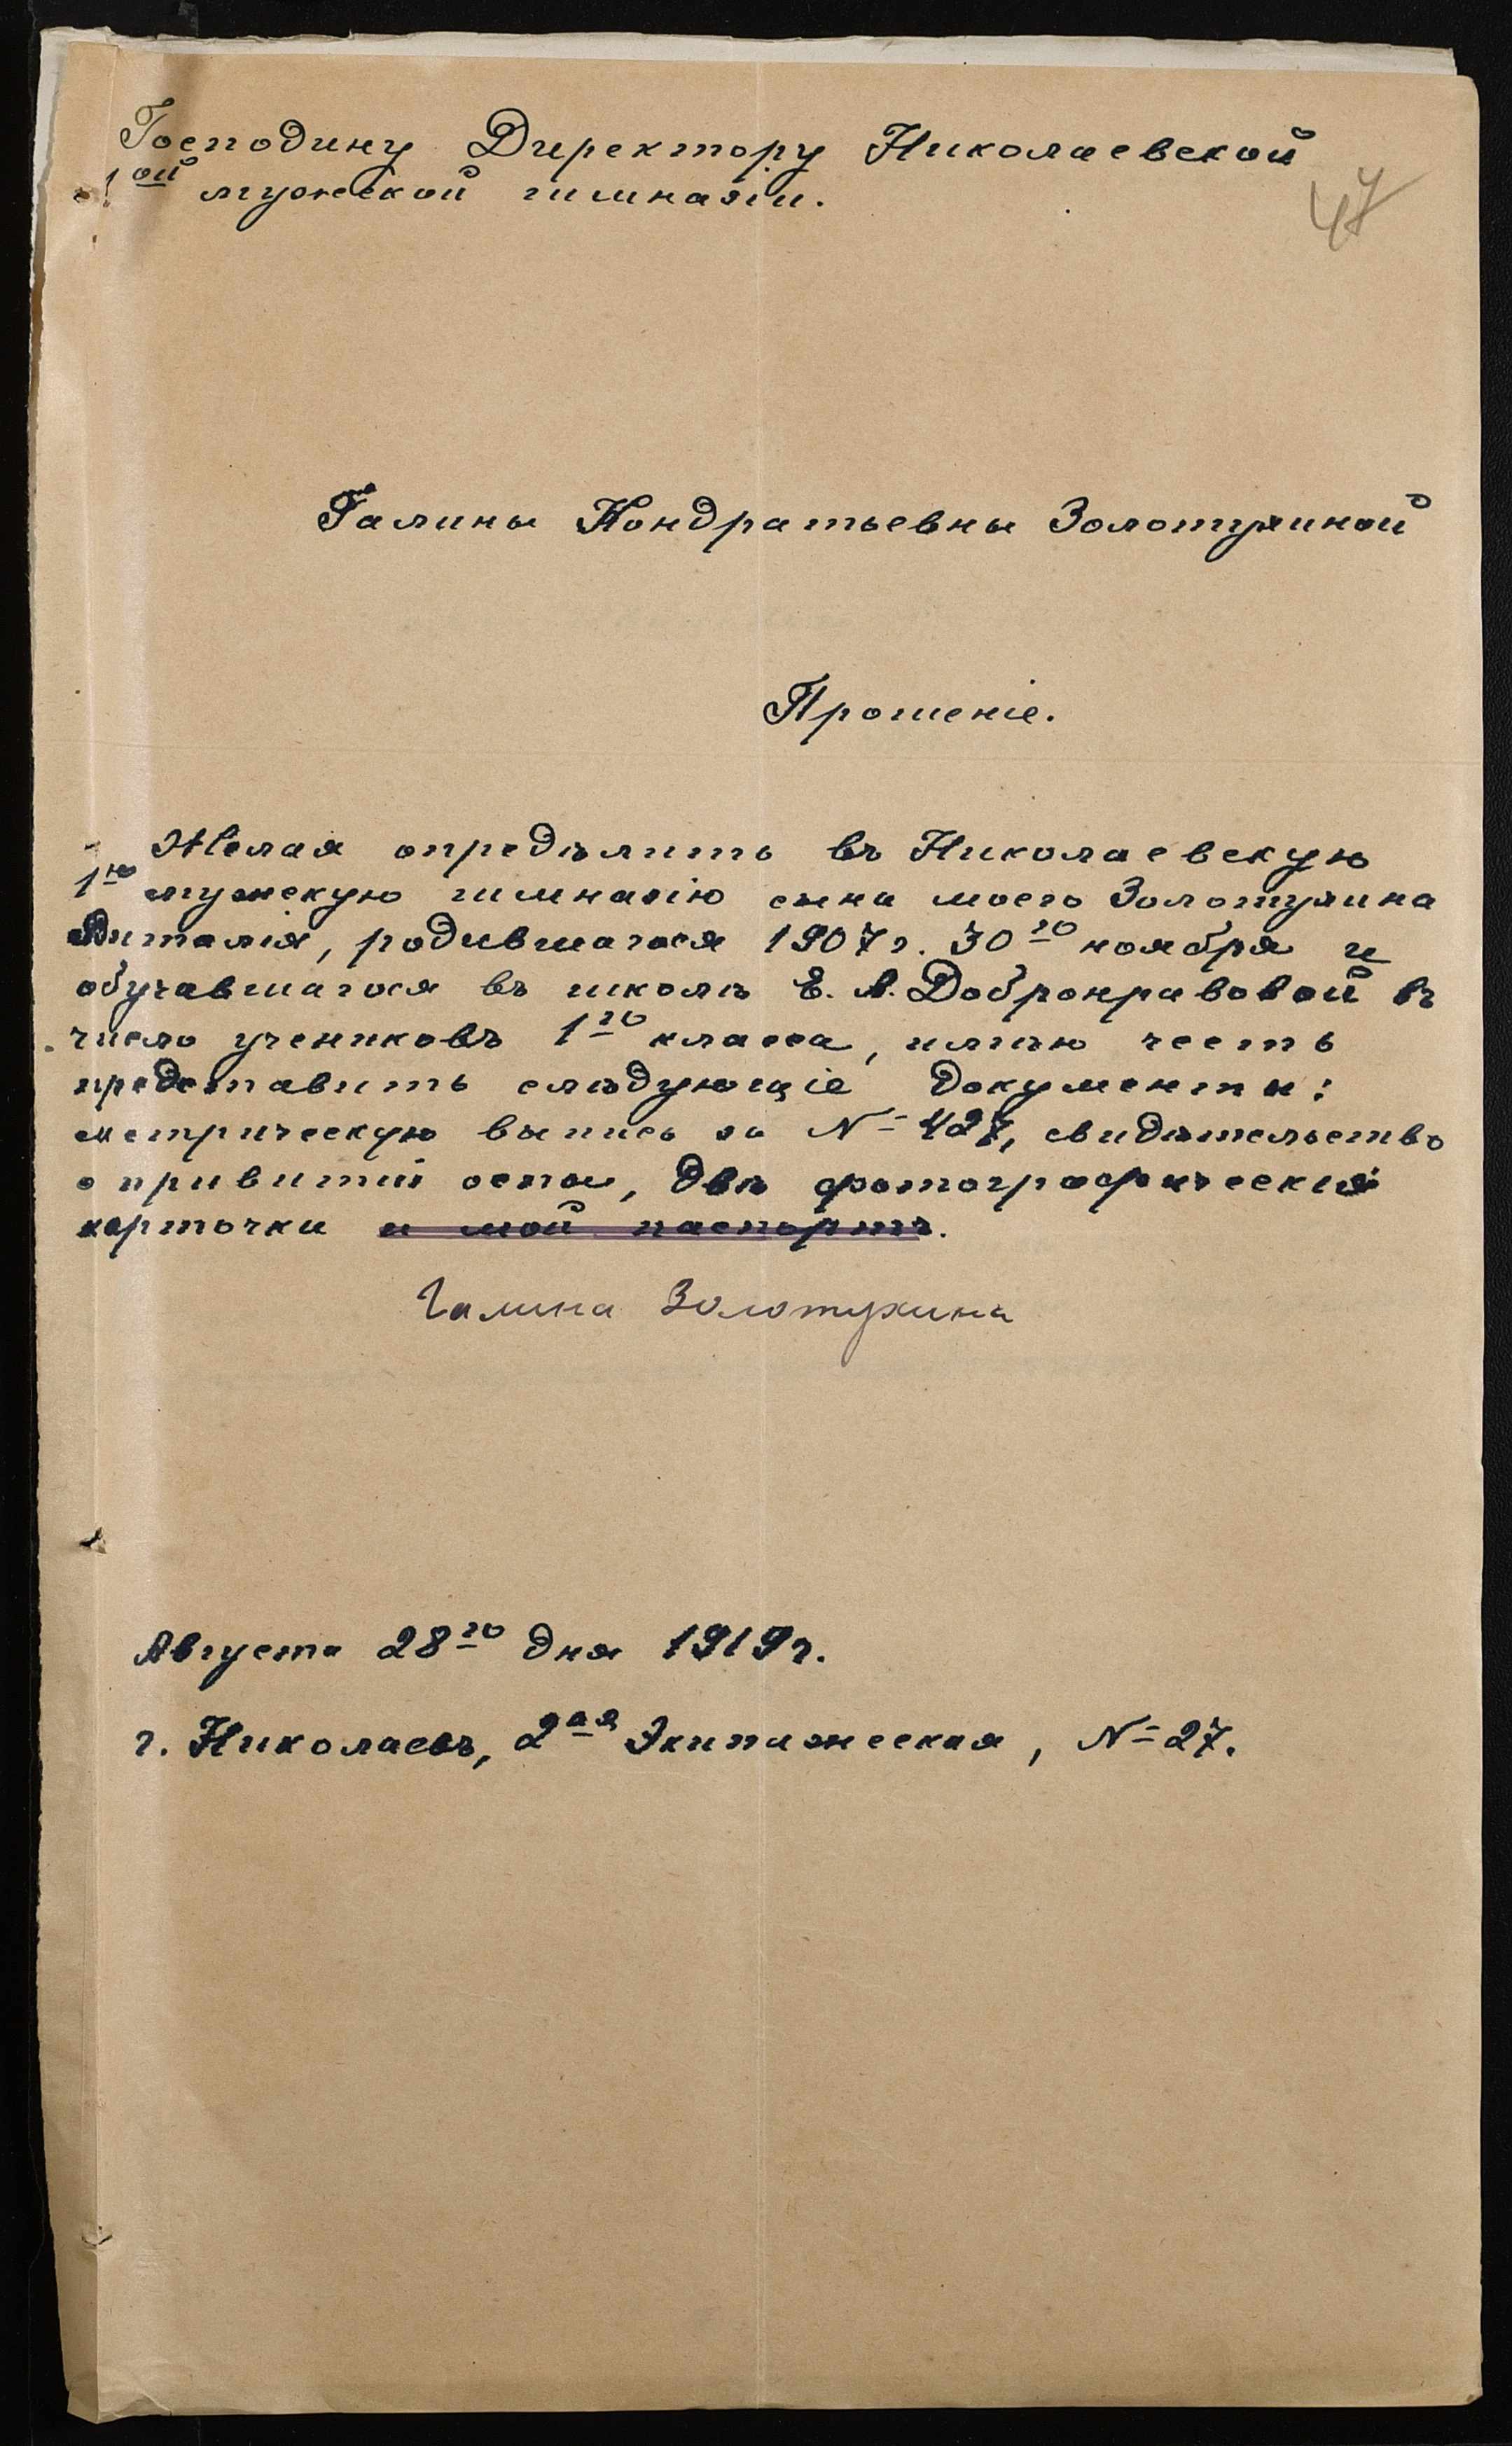 Господину Директору Николаевской
47
1ой мужской гимназіи.
Галины Кондратьевны Золотухиной
Прошеніе.
Желая опредѣлить въ Николаевскую
1ю мужскую гимназію сына моего Золотухина
Виталія, родившагося 1907 г. 30го ноября и
обучавшагося въ школѣ Е. А. Добронравовой въ
число учениковъ 1го класса, имѣю честь
представить слѣдующіе документы:
метрическую выпись за № 427, свидѣтельство
о привитіи оспы, двѣ фотографическія
карточки и мой паспортъ.
Галина Золотухина
Августа 28го дня 1919 г.
г. Николаевъ, 2ая Экипажеская, № 27.